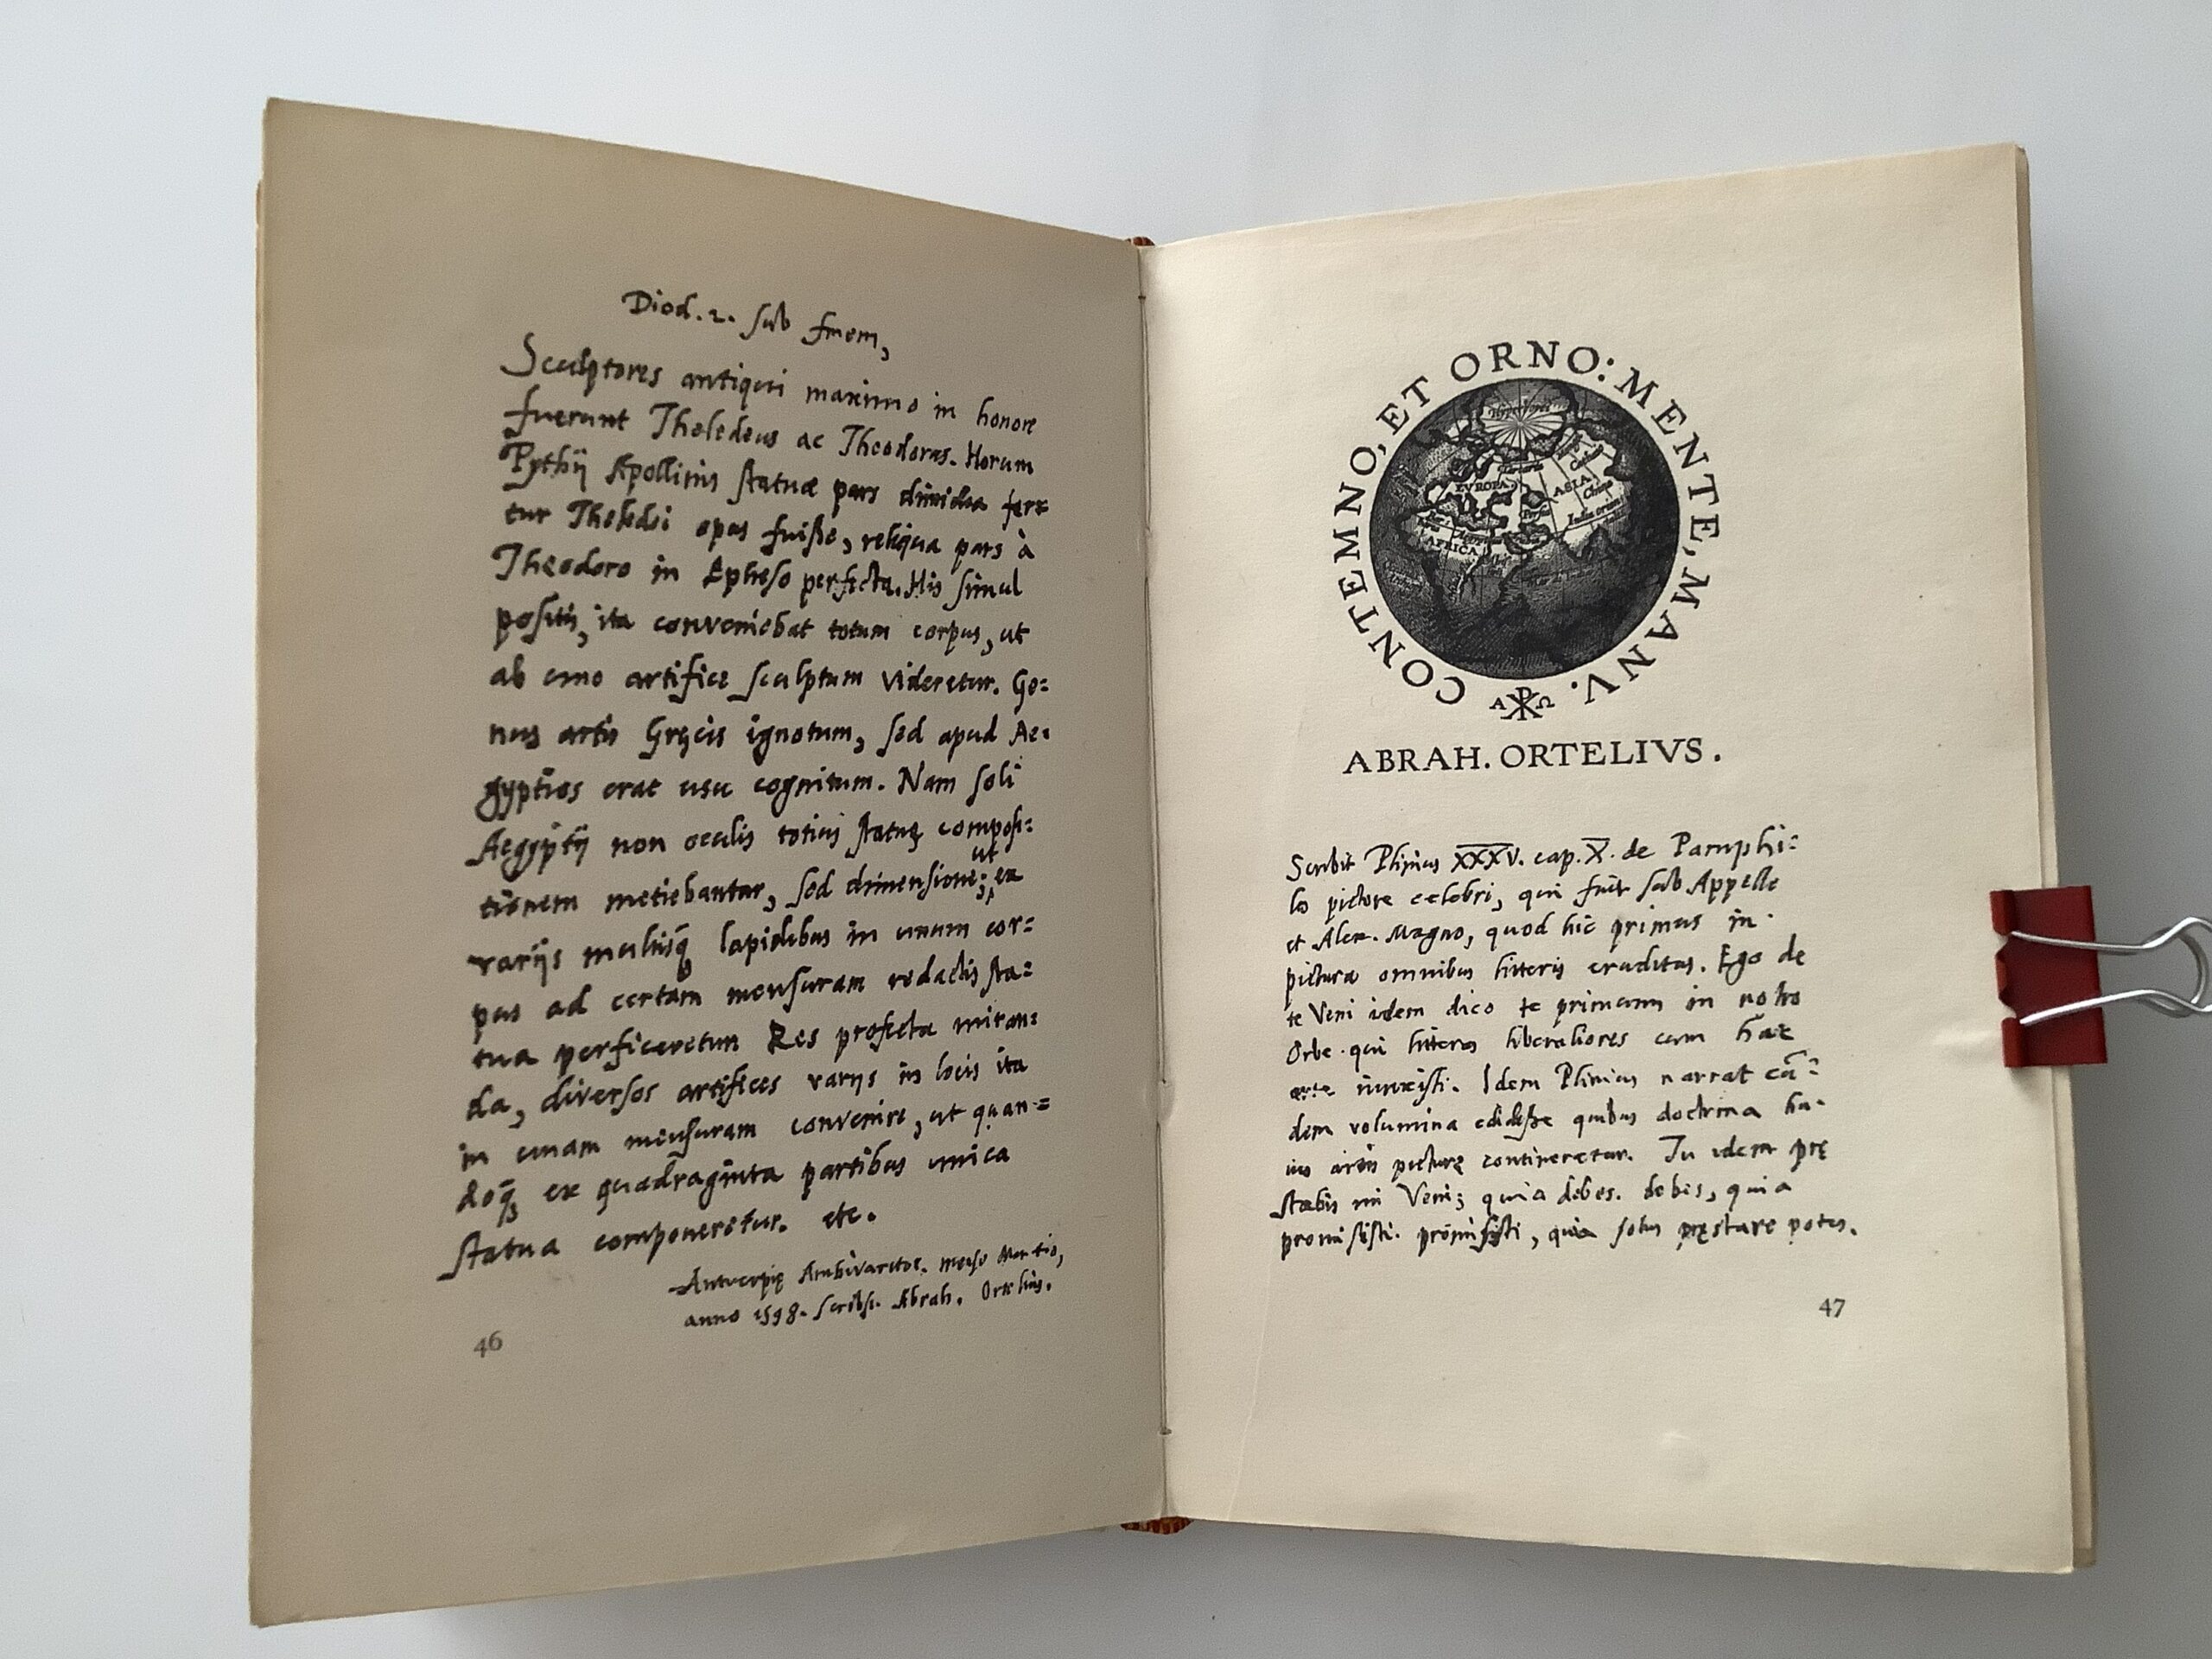 Diod. 2. sub finem,
Sculptores antiqui maximo in honore
fuerunt Theledeus ac Theodorus. Horum
Pythij Apollinis statuæ pars dimidia fer=
tur Theledei opus fuiſſe, reliqua pars à
Theodoro in Epheſo perfecta. His ſimul
poſitis, ita conveniebat totum corpus, ut
ab uno artifice ſculptum videretur. Ge=
nus artis Gręcis ignotum, ſed apud Ae=
gyptios erat usu cognitum. Nam ſoli
Aegyptij non oculis totius ſtatuę compoſi=
tionem metiebantur, ſed dimenſione; ut ex
varijs multisq̃ lapidibus in unum cor=
pus ad certam menſuram redactis ſta=
tua perficeretur. Res profecto miran=
da, diverſos artifices varijs in locis ita
in unam menſuram convenire, ut quan=
doq̃ ex quadraginta partibus unica
ſtatua componeretur. etc.
Antverpię Ambivaritor. menſe Martio,
anno 1598. ſcribſi. Abrah. Ortelius.
46
CONTEMNO, ET ORNO: MENTE, MANV.
EVROPA
ASIA
AFRICA
China
A Ω
ABRAH. ORTELIVS.
Scribit Plinius XXXV. cap. X. de Pamphi=
lo pictore celebri, qui fuit ſub Appelle
et Alex. Magno, quod hic primus in
pictura omnibus litteris eruditus. Ego de
te Veni idem dico te primum in noſtro
Orbe qui litteras liberaliores cum hac
arte iunxiſti. Idem Plinius narrat eũ=
dem volumina edidiſſe quibus doctrina hu=
ius artis picturę contineretur. Tu idem prę
ſtabis mi Veni; quia debes. debes, quia
promiſiſti. promiſiſti, quia ſolus pręstare potes.
47